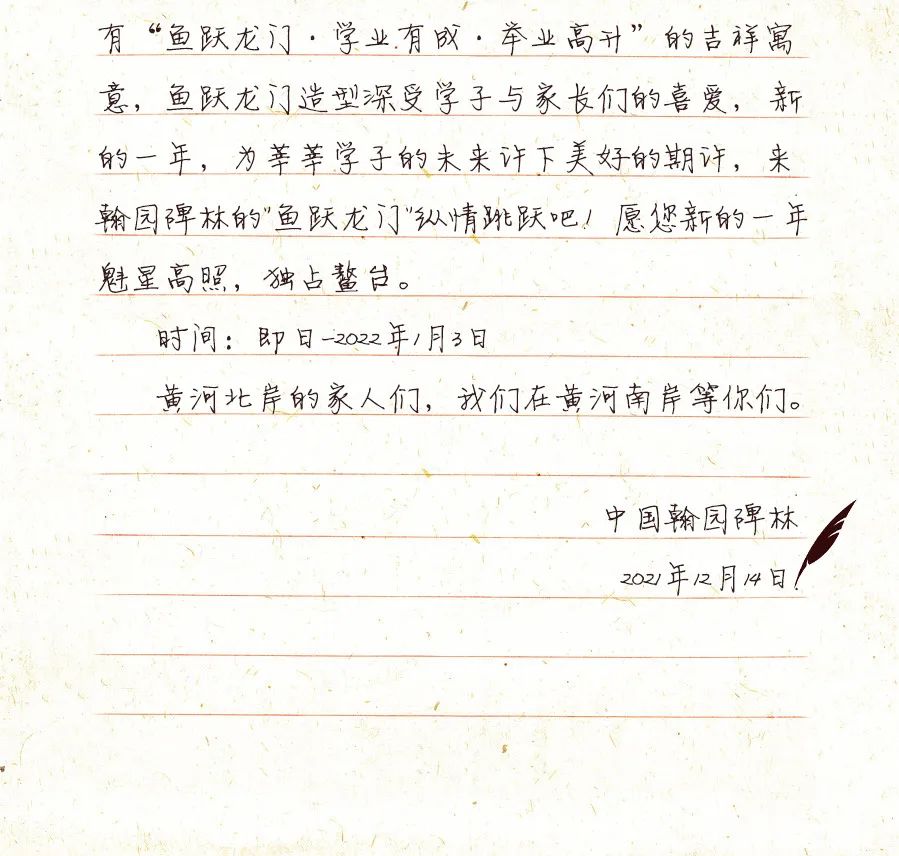 有“鱼跃龙门·学业有成·举业高升”的吉祥寓
意，鱼跃龙门造型深受学子与家长们的喜爱，新
的一年，为莘莘学子的未来许下美好的期许，来
翰园碑林的“鱼跃龙门”纵情跳跃吧！愿您新的一年
魁星高照，独占鳌台。
时间：即日-2022年1月3日
黄河北岸的家人们，我们在黄河南岸等你们。
中国翰园碑林
2021年12月14日